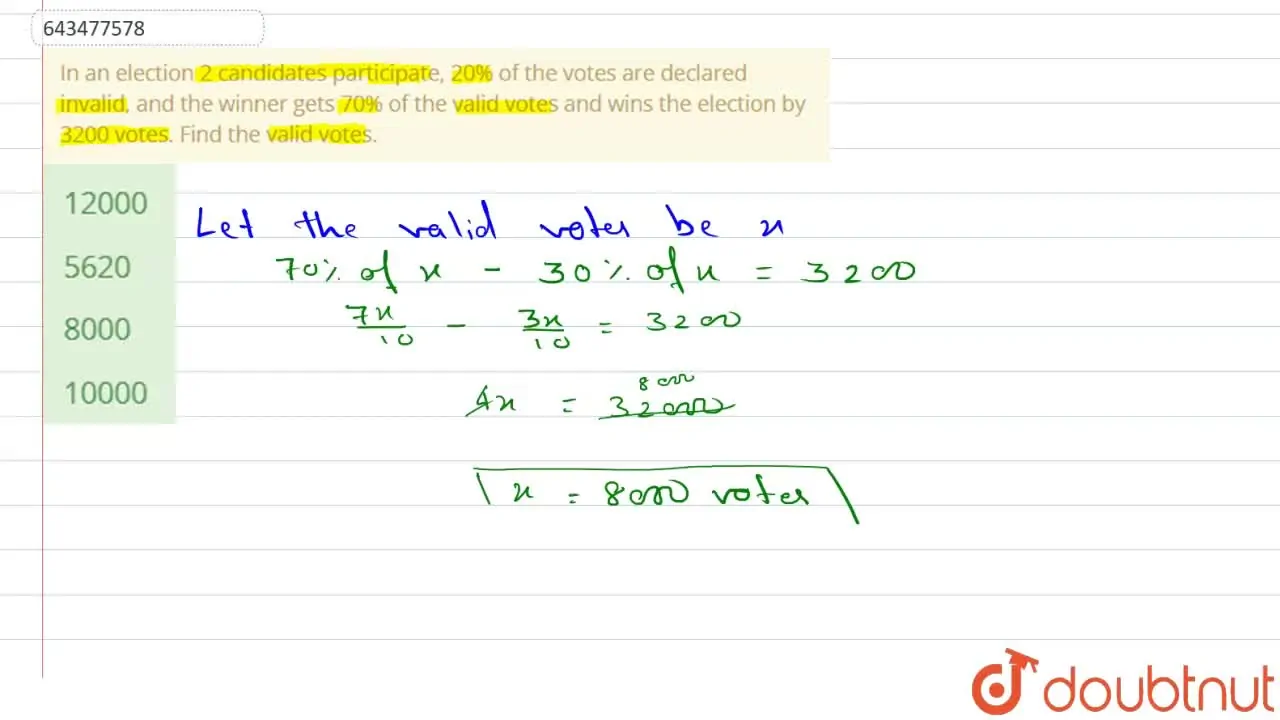 643477578
In an election 2 candidates participate, 20% of the votes are declared
invalid, and the winner gets 70% of the valid votes and wins the election by
3200 votes. Find the valid votes.
12000
5620
8000
10000
Let the valid votes be x
70% of x - 30% of x = 3200
7x/10 - 3x/10 = 3200
8000
4x = 32000
x = 8000 votes
doubtnut